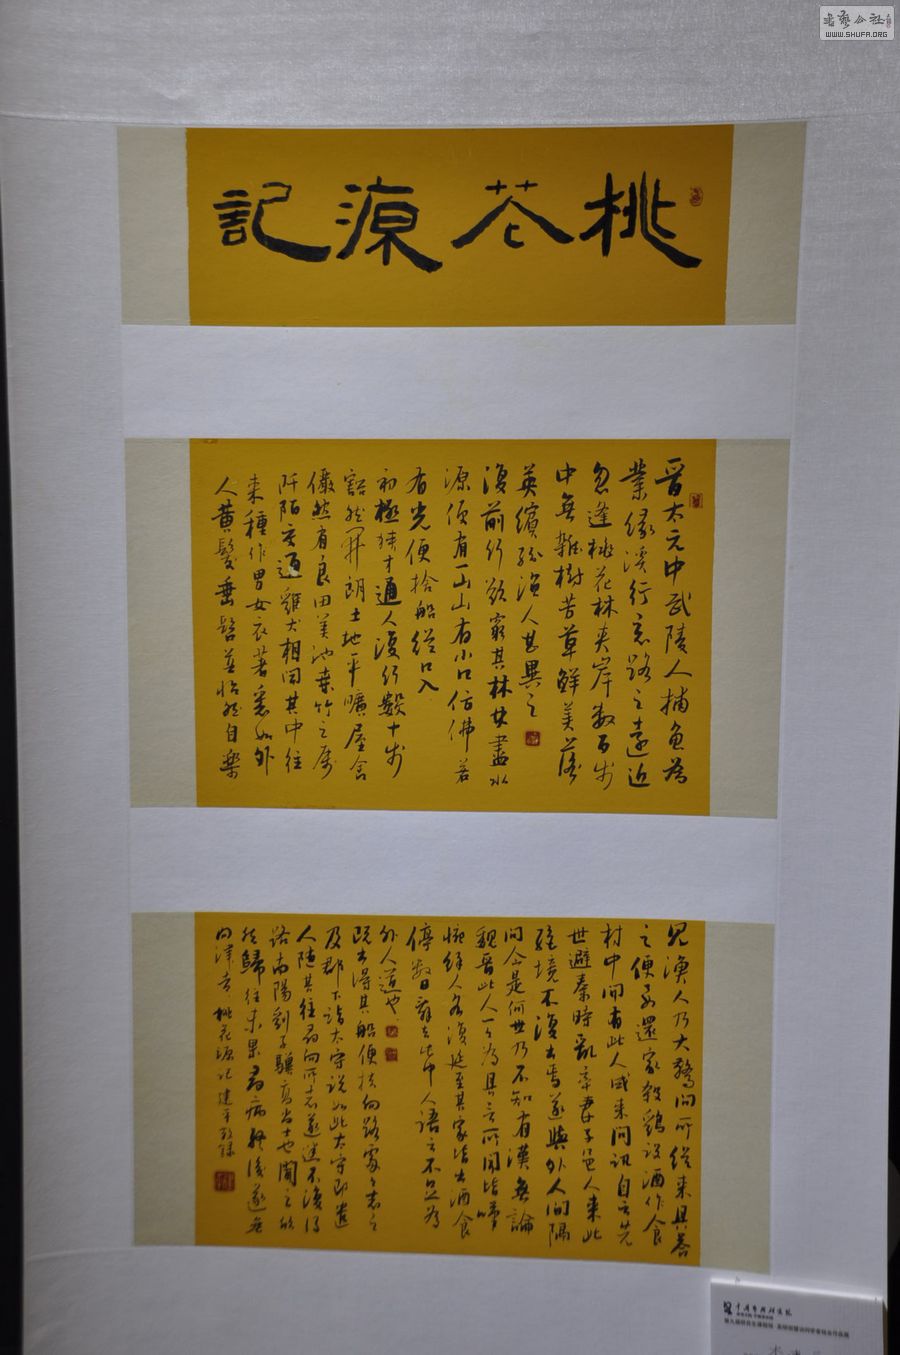 桃花源記
晉太元中武陵人捕魚為
業緣溪行忘路之遠近
忽逢桃花林夾岸數百步
中無雜樹芳草鮮美落
英繽紛漁人甚異之
復前行欲窮其林林盡水
源便有一山山有小口仿佛若
有光便捨船從口入
初極狹才通人復行數十步
豁然開朗土地平曠屋舍
儼然有良田美池桑竹之屬
阡陌交通雞犬相聞其中往
來種作男女衣著悉如外
人黃髮垂髫並怡然自樂
見漁人乃大驚問所從來具答
之便要還家殺鷄設酒作食
村中聞有此人咸來問訊自云先
世避秦時亂率妻子邑人來此
絕境不復出焉遂與外人間隔
問今是何世乃不知有漢無論
魏晉此人一一為具言所聞皆嘆
惋餘人各復延至其家皆出酒食
停數日辭去此中人語云不足為
外人道也
既出得其船便扶向路處處志之
及郡下詣太守說如此太守即遣
人隨其往尋向所志遂迷不復得
路南陽劉子驥高尚士也聞之欣
然歸往未果尋病終後遂無
問津者桃花源記建平敬錄
書藝公社
WWW.SHUFA.ORG